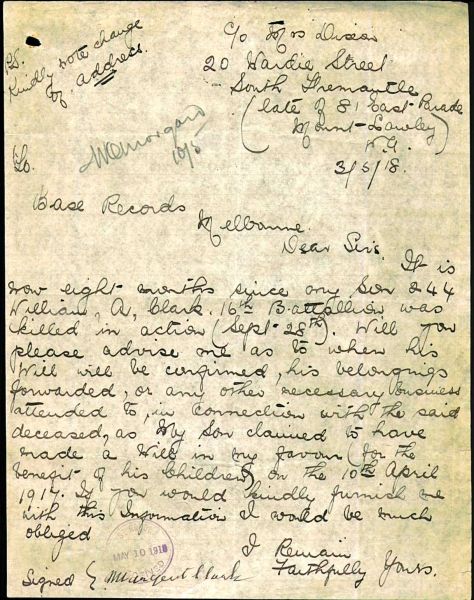 P.S.
Kindly note change
of address.
C/o Mrs
20 Hardie Street
South Fremantle
(late of 81 East Parade
Mount-Lawley)
W.A.
3/5/18.
To.
10/5
Base Records
Melbourne.
Dear Sirs.
It is
now eight months since my Son 244
William, A, Clark. 16th Battallion, was
killed in action (Sept-28th). Will you
please advise me as to when his
Will will be confirmed, his belongings
forwarded, or any other necessary business
attended to, in connection with the said
deceased, as My Son claimed to have
made a Will in my favour (for the
benefit of his Children) on the 10th April
1917. If you would kindly furnish me
with this Information I would be much
obliged
MAY 10 1918
I Remain
Faithfully Yours.
Signed E. Margaret Clark